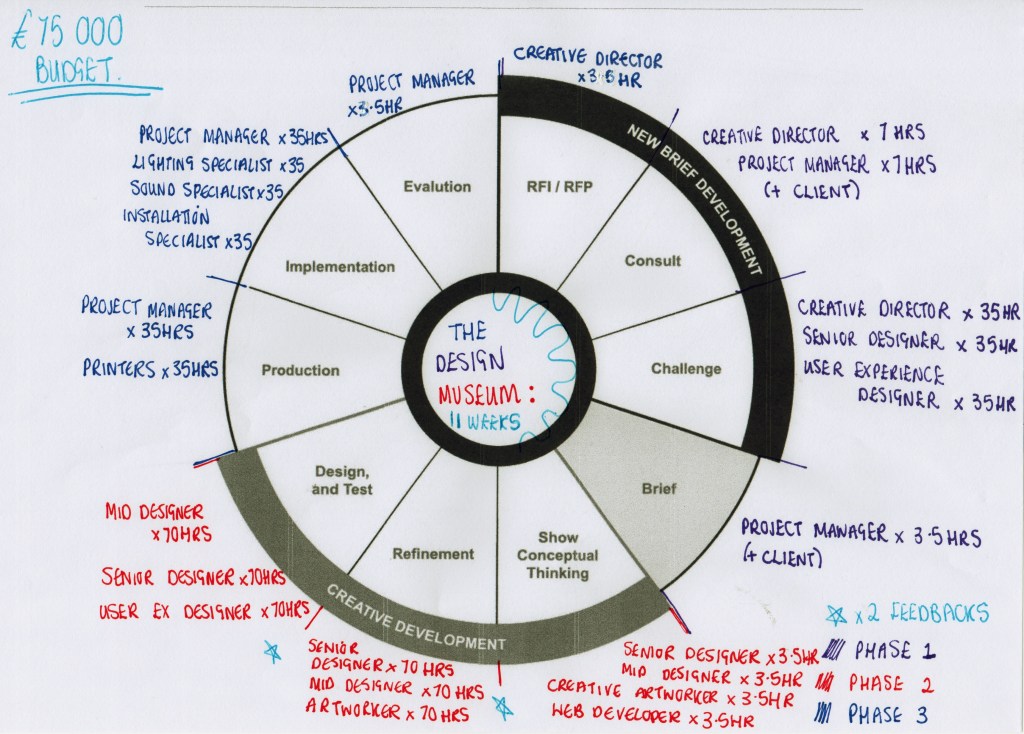 £75 000
BUDGET.
CREATIVE DIRECTOR
x3.5HR
PROJECT MANAGER
x3.5HR
PROJECT MANAGER x35HRS
LIGHTING SPECIALIST x35
SOUND SPECIALIST x35
INSTALLATION
SPECIALIST x35
CREATIVE DIRECTOR x 7 HRS
PROJECT MANAGER x7HRS
(+ CLIENT)
NEW BRIEF DEVELOPMENT
Evalution
RFI / RFP
Implementation
Consult
PROJECT MANAGER
x 35HRS
PRINTERS x35HRS
CREATIVE DIRECTOR x 35HR
SENIOR DESIGNER x 35HR
USER EXPERIENCE
DESIGNER x 35HR
Production
THE
DESIGN
MUSEUM:
11 WEEKS
Challenge
Design,
and Test
Brief
MID DESIGNER
x70HRS
SENIOR DESIGNER x70HRS
USER EX DESIGNER x70HRS
PROJECT MANAGER x 3.5HRS
(+ CLIENT)
Refinement
Show
Conceptual
Thinking
CREATIVE DEVELOPMENT
SENIOR
DESIGNER x 70 HRS
MID DESIGNER x 70HRS
ARTWORKER x 70HRS
SENIOR DESIGNER x 3.5HR
MID DESIGNER x 3.5HR
CREATIVE ARTWORKER x 3.5HR
WEB DEVELOPER x 3.5HR
x2 FEEDBACKS
PHASE 1
PHASE 2
PHASE 3